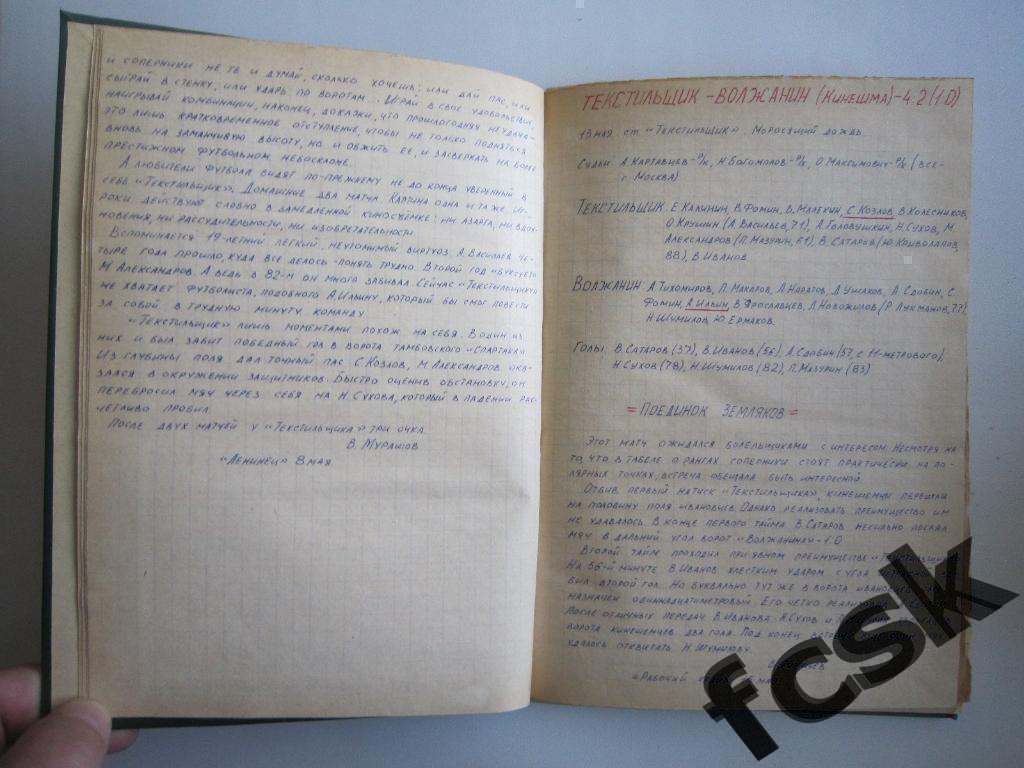 и соперники не те и думай, сколько хочешь: или дай пас, или
сыграй в стенку, или ударь по воротам... Играй в свое удовольствие,
наигрывай комбинации, наконец, докажи, что прошлогодняя неудача-
это лишь кратковременное отступление, чтобы не только подняться
вновь на заманчивую высоту, но и обжить ее, и засверкать на более
престижном футбольном небосклоне.
А любители футбола видят по-прежнему не до конца уверенный в
себе «Текстильщик». Домашние два матча. Картина одна и та же. Иг-
роки действуют словно в замедленной киносъёмке: ни азарта, ни вдох-
новения, ни рассудительности, ни изобретательности.
Вспоминается 19-летний легкий, неутомимый виртуоз А. Васильев. Че-
тыре года прошло, куда все делось-понять трудно. Второй год «буксует»
М. Александров. А ведь в 82-м он много забивал. Сейчас «Текстильщику»
не хватает футболиста, подобного А. Ильину, который бы смог повести
за собой в трудную минуту команду.
«Текстильщик» лишь моментами похож на себя. В один из
них и был забит победный гол в ворота тамбовского «Спартака».
Из глубины поля дал точный пас С. Козлов, М. Александров ока-
зался в окружении защитников. Быстро оценив обстановку, он
перебросил мяч через себя на Н. Сухова, который в падении рас-
четливо пробил.
После двух матчей у «Текстильщика» три очка.
В. Мурашов
«Ленинец» 8 мая.
Текстильщик-Волжанин (Кинешма)-4:2 (1:0)
13 мая. ст. «Текстильщик». Моросящий дождь.
Судьи: А. Картавцев-р/к, Н. Богомолов-р/к, О. Максимович-р/к (все-
г. Москва)
Текстильщик: Е. Калинин, В. Фомин, В. Малехин, С. Козлов, В. Колесников,
О. Крушин (А. Васильев, 71), А. Головушкин, Н. Сухов, М.
Александров (П. Мазурин, 61), В. Сатаров (Ю. Криволапов,
88), В. Иванов
Волжанин: А. Тихомиров, Л. Макаров, А. Ушаков, А. Сдобин, С.
Фомин, А. Ильин, В. Ярославцев, Л. Новожилов (Р. Лукманов, 77)
Н. Шумилов, Ю. Ермаков.
Голы: В. Сатаров (37), В. Иванов (56), А. Сдобин (57, с 11-метрового),
Н. Сухов (78), Н. Шумилов (82), П. Мазурин (83)
= Поединок земляков =
Этот матч ожидался болельщиками с интересом. Несмотря на
то, что в табеле о рангах соперники стоят практически на по-
лярных точках, встреча обещала быть интересной.
Отбив первый натиск «Текстильщика», кинешемцы перешли
на половину поля ивановцев. Однако, реализовать преимущество им
не удавалось. В конце первого тайма В. Сатаров несильно послал
мяч в дальний угол ворот «Волжанина»-1:0
Второй тайм проходил при явном преимуществе «Текстильщика».
На 56-й минуте В. Иванов хлестким ударом с угла
бил второй гол. Но буквально тут же в ворота ивановцев
назначен одиннадцатиметровый. Его четко реализовал
После отличных передач В. Иванова Н. Сухов и П.
ворота кинешемцев два гола. Под конец
удалось отквитать Н. Шумилову.
«Рабочий мая
fcsk